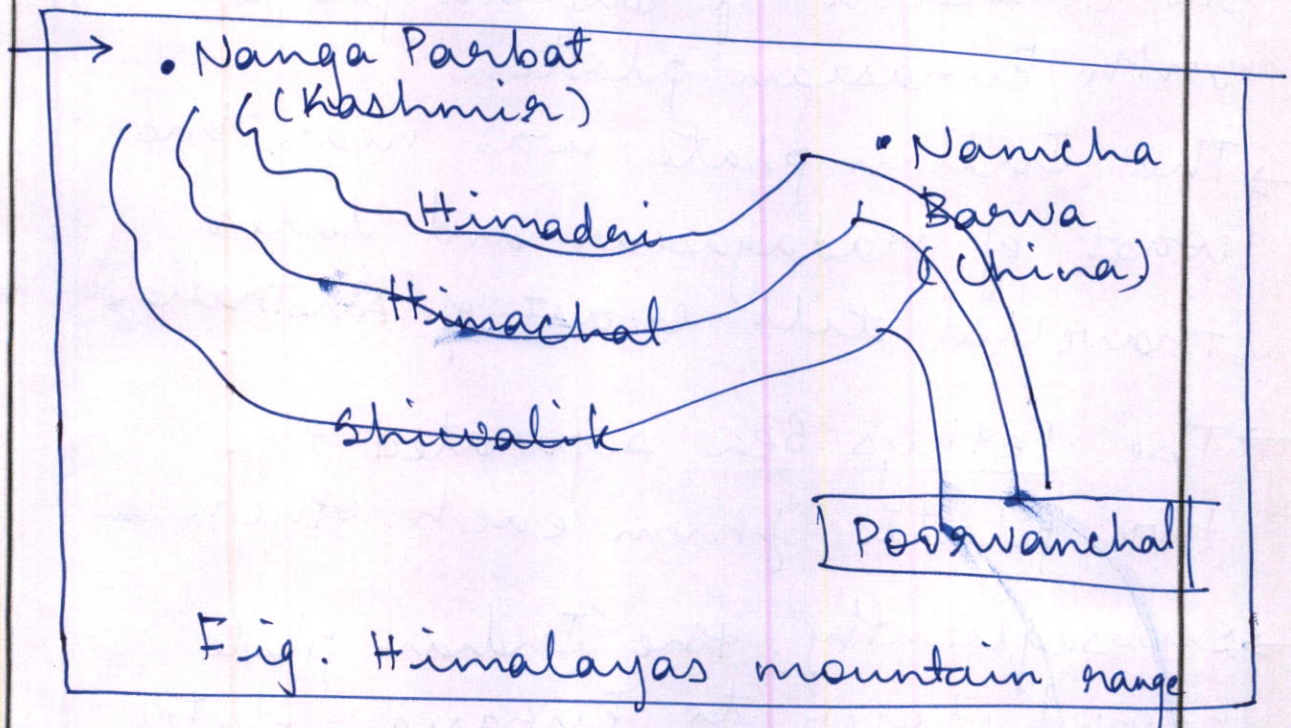 . Nanga Parbat
(Kashmir)
. Namcha
Barwa
(China)
Himadri
Himachal
Shiwalik
Poorvanchal
Fig. Himalayas mountain range